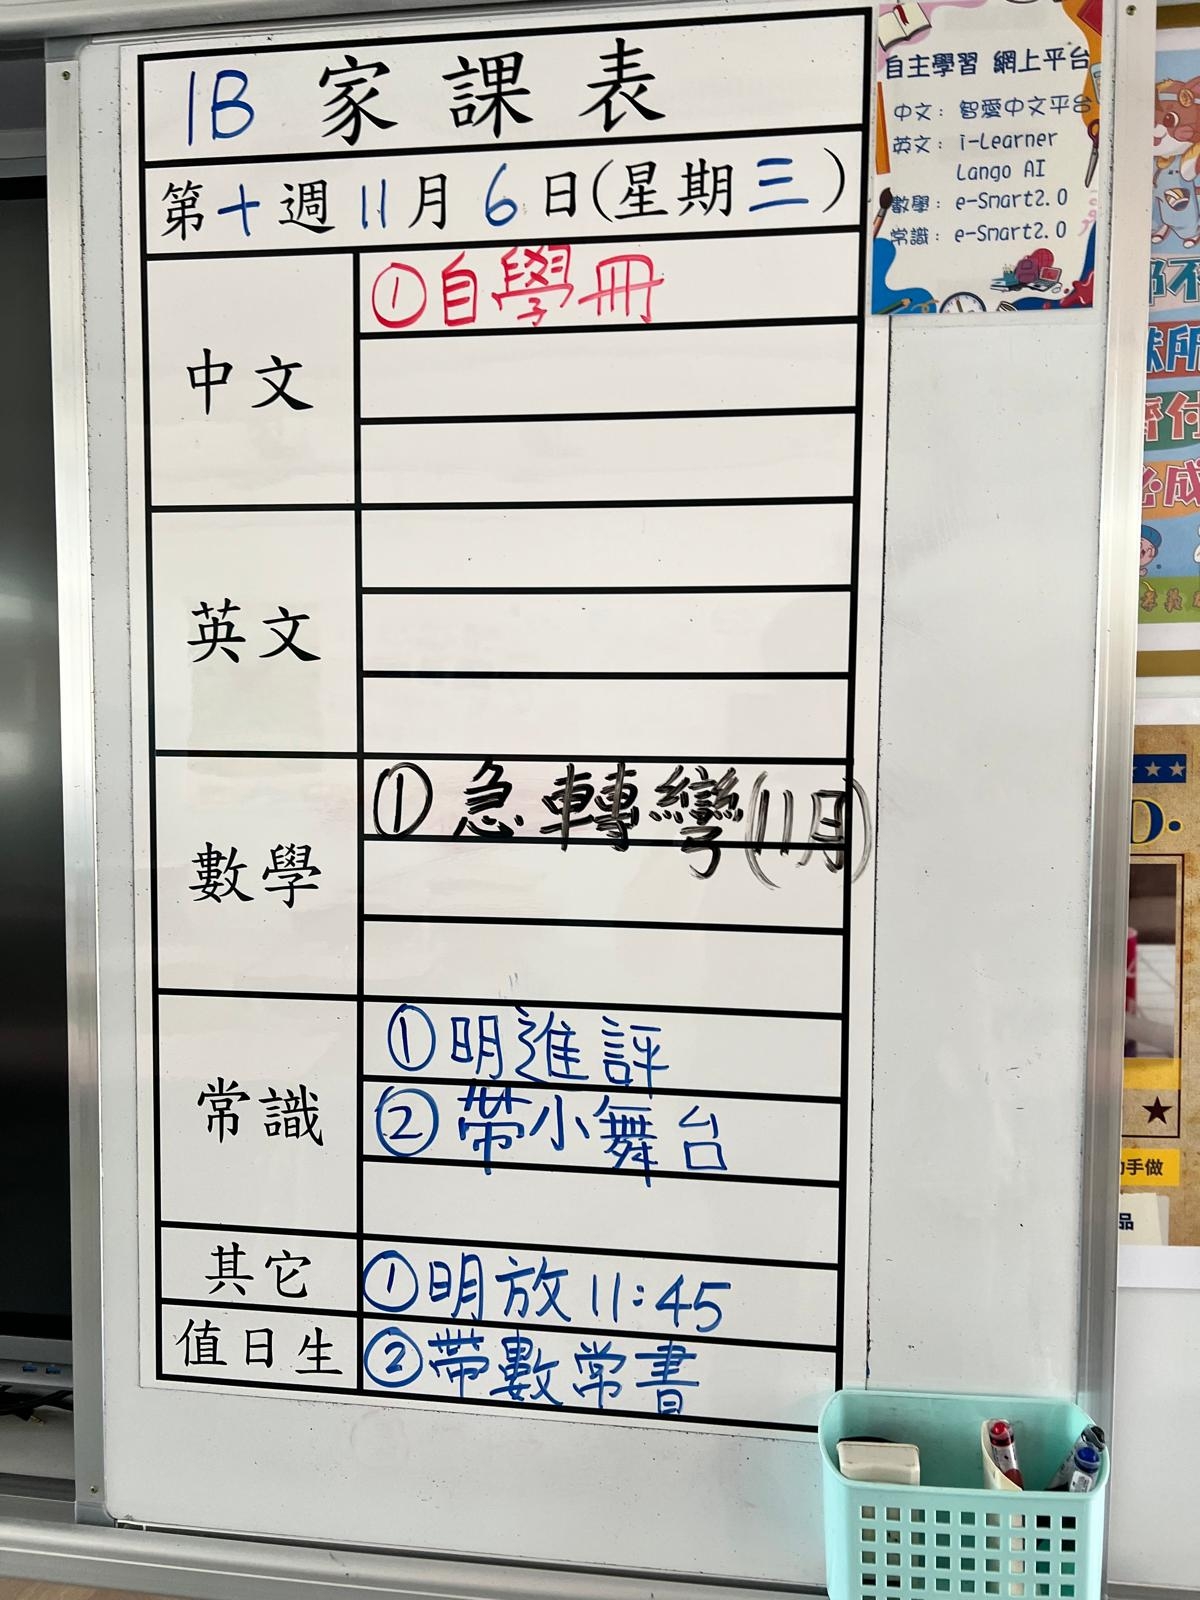 1B 家課表
第十週 11月6日(星期三)
中文
①自學冊
英文
數學
①急轉彎(11月)
常識
①明進評
②帶小舞台
其它
①明放11:45
值日生
②帶數常書
自主學習 網上平台
中文：智愛中文平台
英文：i-Learner
Lango AI
數學：e-Smart2.0
常識：e-Smart2.0
手做
品